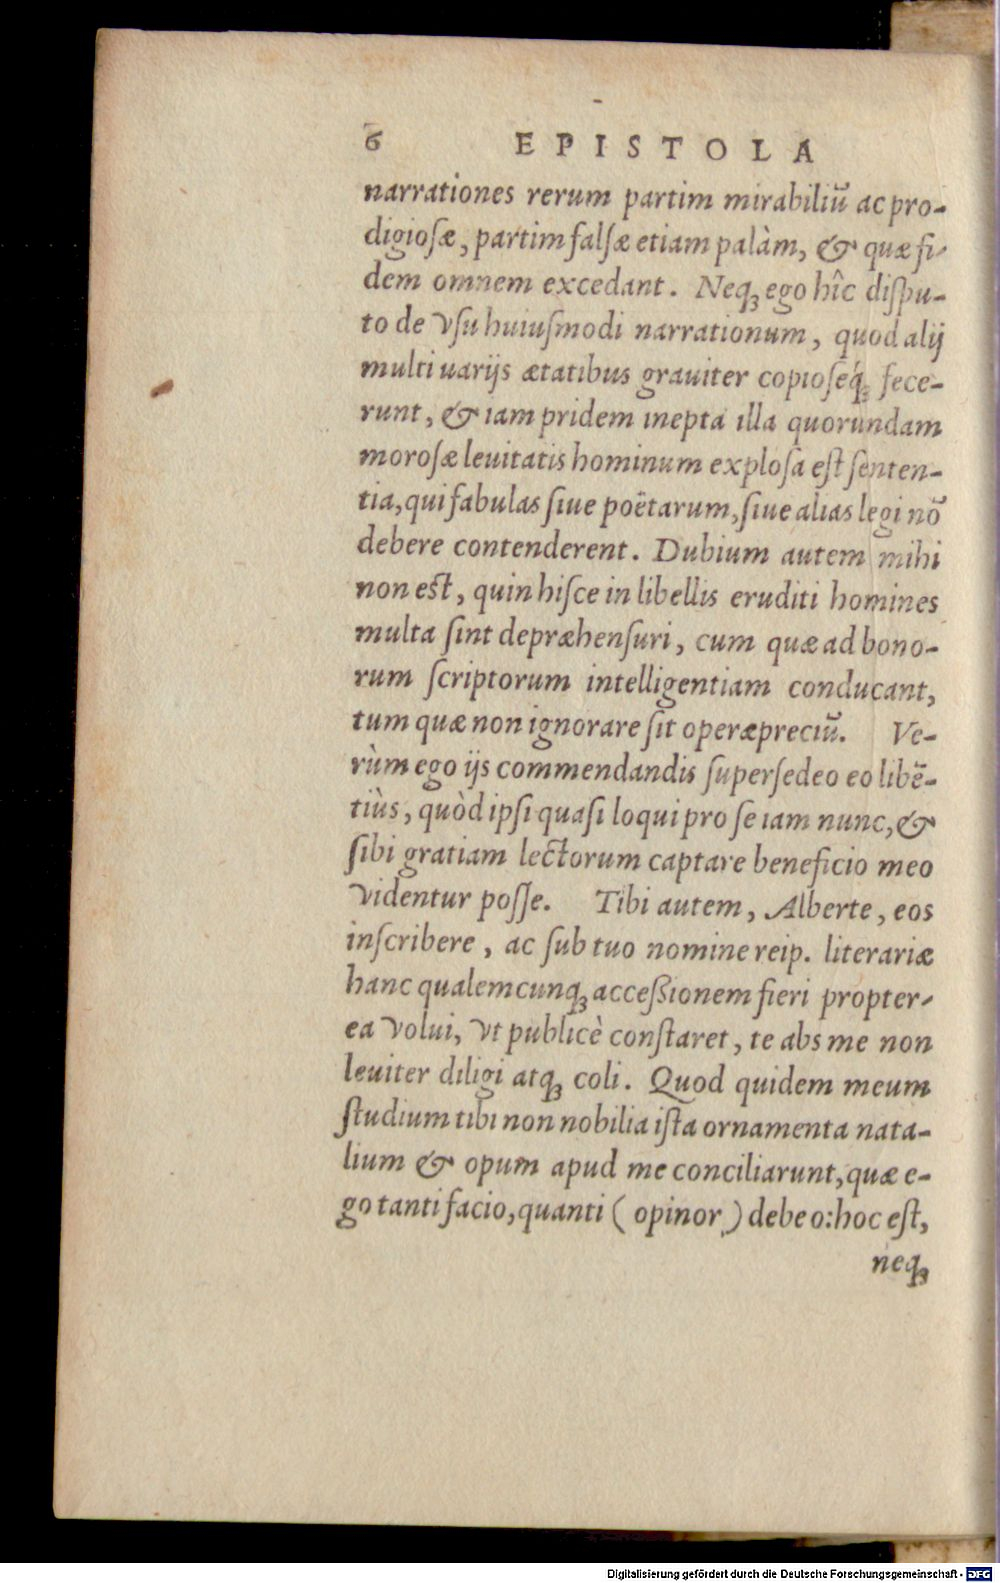 6 EPISTOLA
narrationes rerum partim mirabiliū ac pro-
digiosæ, partim falsæ etiam palàm, & quæ fi-
dem omnem excedant. Neq; ego hîc dispu-
to de vsu huiusmodi narrationum, quod alij
multi uarijs ætatibus grauiter copioseq́; fece-
runt, & iam pridem inepta illa quorundam
morosæ leuitatis hominum explosa est senten-
tia, qui fabulas siue poëtarum, siue alias legi nō
debere contenderent. Dubium autem mihi
non est, quin hisce in libellis eruditi homines
multa sint depræhensuri, cum quæ ad bono-
rum scriptorum intelligentiam conducant,
tum quæ non ignorare sit operæpreciū. Ve-
rùm ego ijs commendandis supersedeo eo libē-
tiùs, quòd ipsi quasi loqui pro se iam nunc, &
sibi gratiam lectorum captare beneficio meo
videntur posse. Tibi autem, Alberte, eos
inscribere, ac sub tuo nomine reip. literariæ
hanc qualemcunq; acceßionem fieri propter-
ea volui, vt publicè constaret, te abs me non
leuiter diligi atq; coli. Quod quidem meum
studium tibi non nobilia ista ornamenta nata-
lium & opum apud me conciliarunt, quæ e-
go tanti facio, quanti (opinor) debeo: hoc est,
neq;
Digitalisierung gefördert durch die Deutsche Forschungsgemeinschaft - DFG